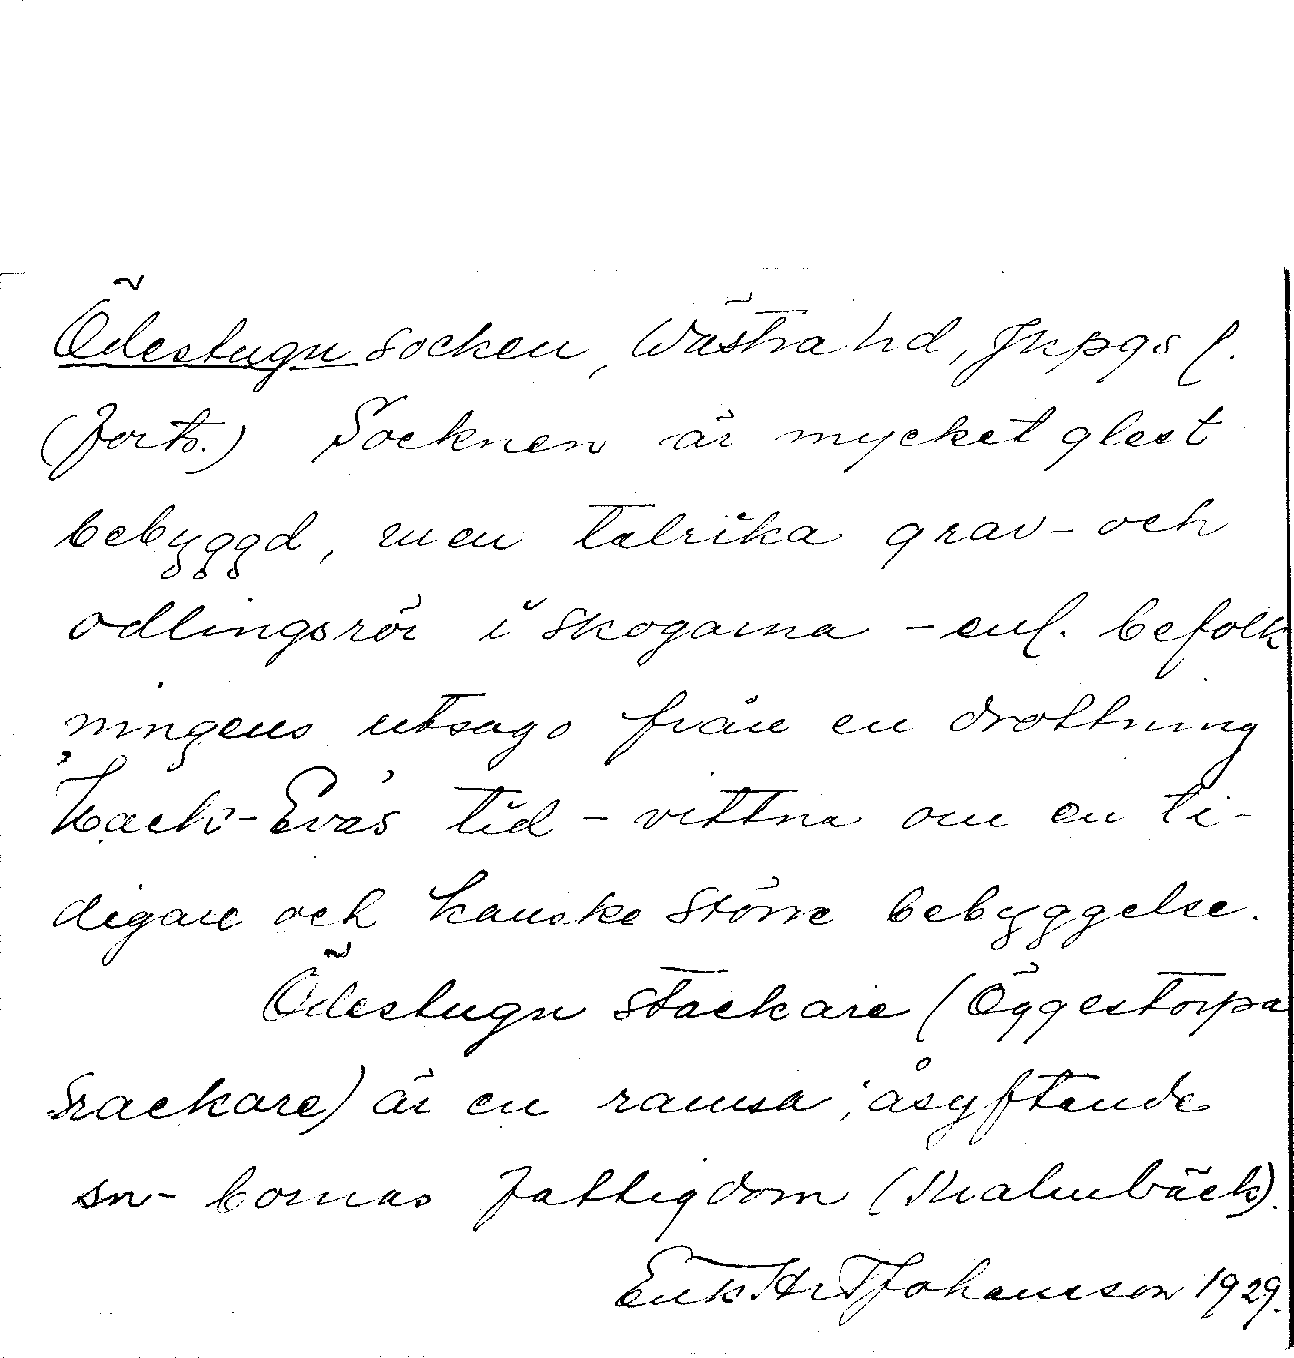 Ödestugu socken, Västra hd, Jkpgs l.
(forts.) Socknen är mycket glest
bebyggd, men talrika grav- och
odlingsrör i skogarna - enl. befolk
ningens utsago från en drottning
Häck-Evas tid - vittna om en ti-
digare och kanske större bebyggelse.
Ödestugu stackare (Öggestorpa
rackare) är en ramsa, åsyftande
sn- bornas fattigdom (Malmbäck).
Erik Johansson 1929.